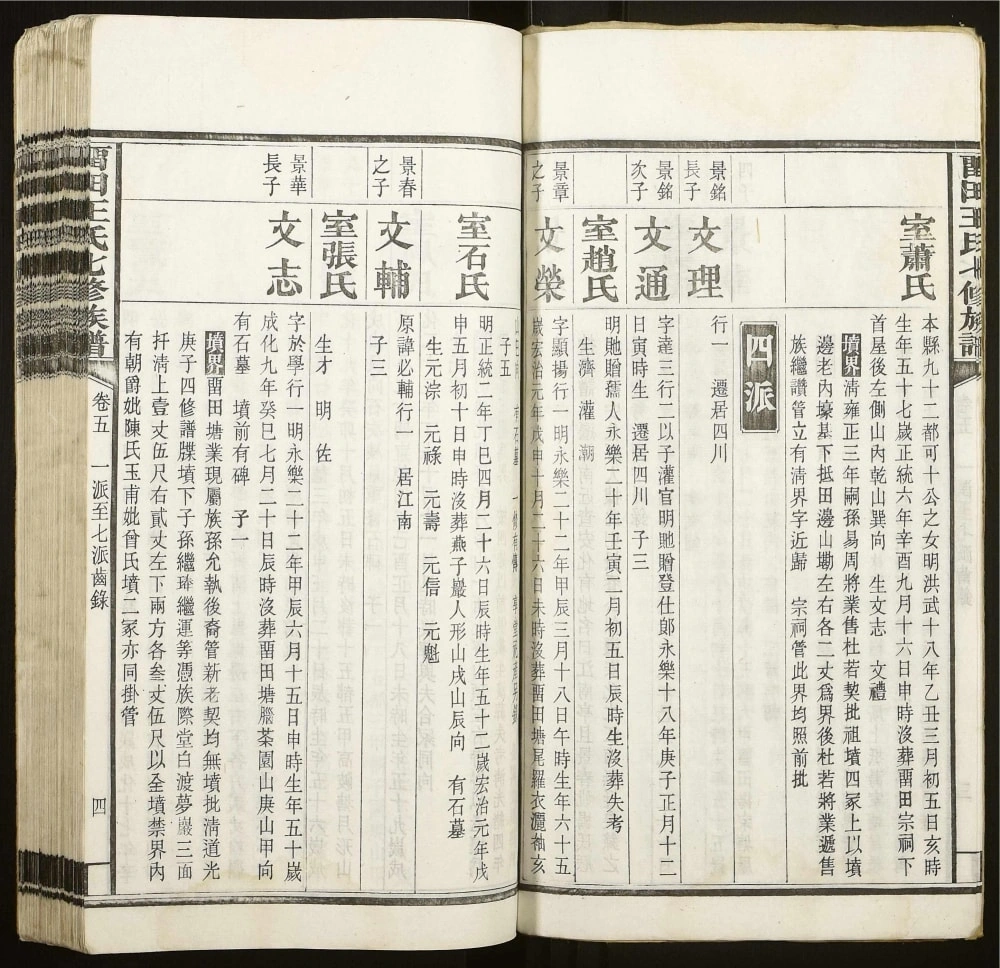 留田王氏七修族譜
室蕭氏
本縣九十二都可十公之女明洪武十八年乙丑三月初五日亥時
生年五十七歲正統六年辛酉九月十六日申時沒葬畱田宗祠下
首屋後左側山內乾山巽向 生文志 文禮
墳界清雍正三年嗣孫易周將業售杜若契批祖墳四冢上以墳
邊老內壕基下抵田邊山塝左右各二丈爲界後杜若將業遞售
族繼讚管立有淸界字近歸 宗祠管此界均照前批
四派
景銘
長子
文理
行一 遷居四川
景銘
次子
文通
字達三行二以子灌官明貤贈登仕郎永樂十八年庚子正月十二
日寅時生 遷居四川 子三
室趙氏
明貤贈孺人永樂二十年壬寅二月初五日辰時生沒葬失考
生濟 灌 潮
景章
之子
文榮
字顯揚行一明永樂二十二年甲辰三月十八日午時生年六十五
歲宏治元年戊申十月二十六日未時沒葬畱田塘尾羅衣灑袖亥
子五
室石氏
明正統二年丁巳四月二十六日辰時生年五十二歲宏治元年戊
申五月初十日申時沒葬燕子巖人形山戌山辰向 有石墓
生元淙 元祿 元壽 元信 元魁
景春
之子
文輔
原諱必輔行一 居江南
子三
室張氏
生才 明 佐
景華
長子
文志
字於學行一明永樂二十二年甲辰六月十五日申時生年五十歲
成化九年癸巳七月二十日辰時沒葬畱田塘膃茶園山庚山甲向
有石墓 墳前有碑 子一
墳界畱田塘業現屬族孫允執後裔管新老契均無墳批淸道光
庚子四修譜牒墳下子孫繼琫繼運等憑族際堂白渡夢巖三面
扦淸上壹丈伍尺右貳丈左下兩方各叁丈伍尺以全墳禁界內
有朝爵妣陳氏玉甫妣曾氏墳二冢亦同掛管
畱田王氏七修族譜
卷五 一派至七派齒錄
四